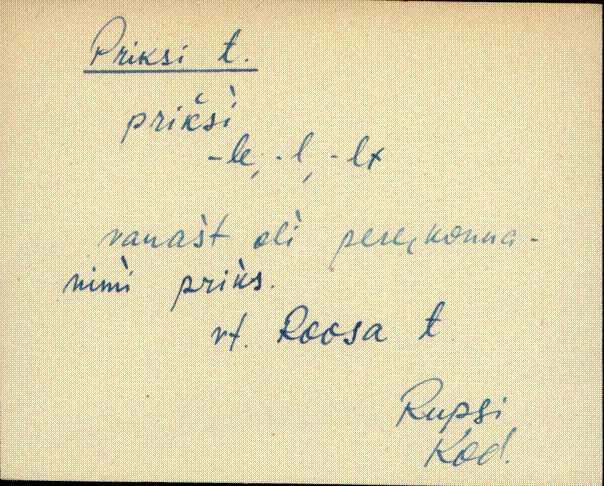 Priksi t.
prikšì
-le, -l, -lx
vanašt olì perekonna-
nimì priks.
vt. Roosa t
Rupsi
Kod.